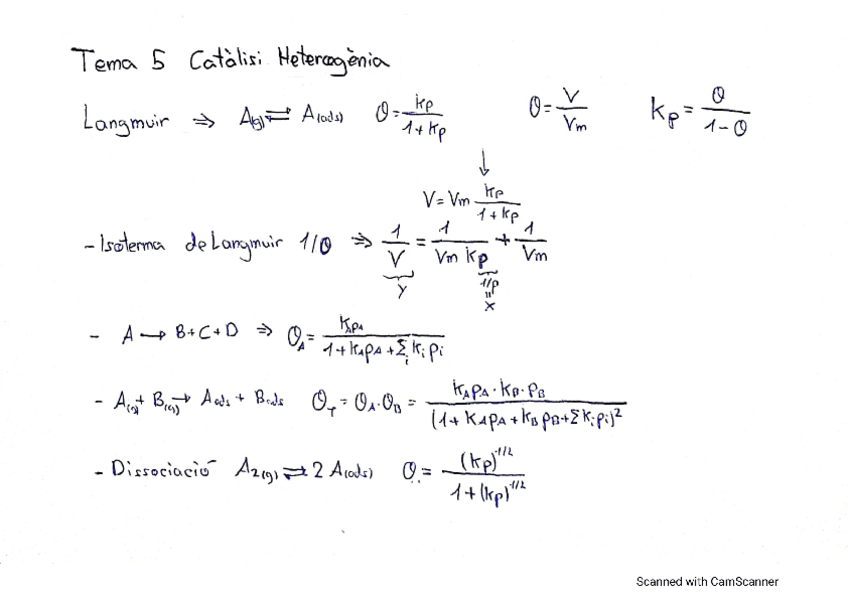 Tema 5 Catàlisi Heterogènia
Langmuir ⇒ A(g) ⇌ A(ads) θ = kp / 1 + kp θ = V / Vm kp = θ / 1 - θ
↓
V = Vm kp / 1 + kp
- Isoterma de Langmuir 1/θ ⇒ 1 / V = 1 / Vm kp + 1 / Vm
Y 1/p
=
X
- A → B + C + D ⇒ θA = KApA / 1 + KApA + Σi Ki pi
- A(g) + B(g) → Aads + Bads θT = θA · θB = KApA · KB · PB / (1 + KApA + KB PB + ΣKi pi)²
- Dissociació A2(g) ⇌ 2 A(ads) θ = (kp)^1/2 / 1 + (kp)^1/2
Scanned with CamScanner